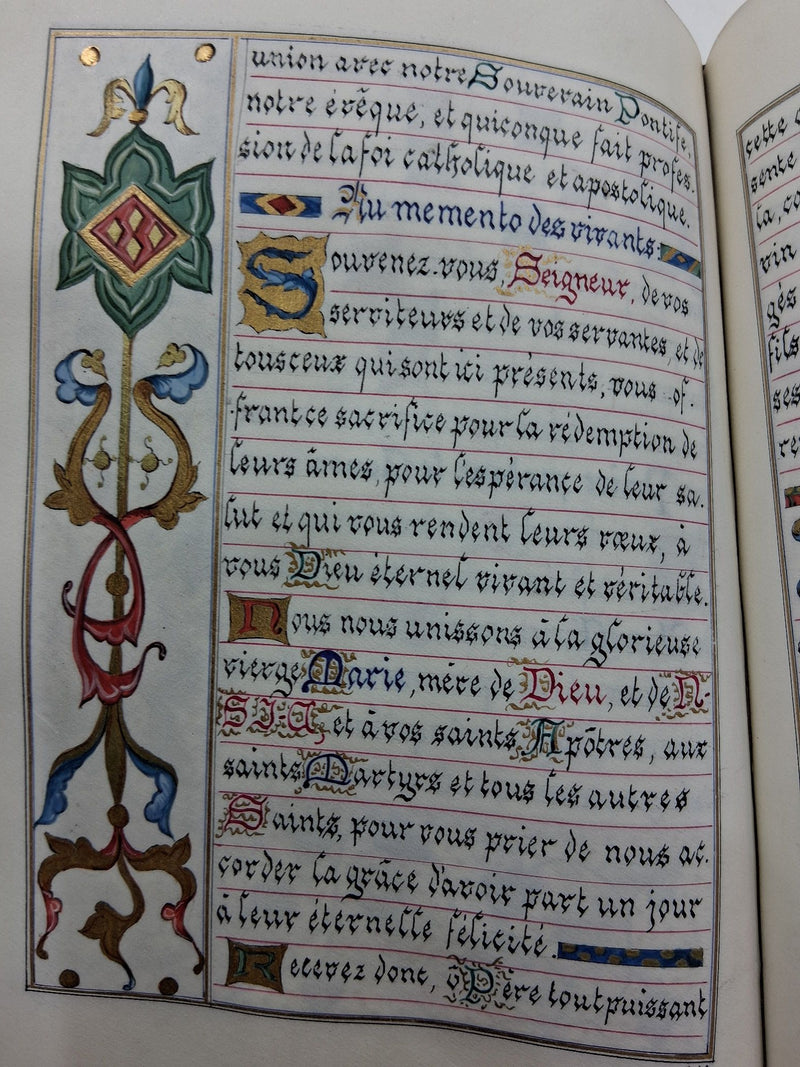 union avec notre Souverain Pontife,
notre évêque, et quiconque fait profes.
sion de la foi catholique et apostolique.
Au memento des vivants.
Souvenez-vous, Seigneur, de vos
serviteurs et de vos servantes, et de
tous ceux qui sont ici présents, vous of-
frant ce sacrifice pour la rédemption de
leurs âmes, pour l'espérance de leur sa.
lut et qui vous rendent leurs vœux, à
vous Dieu éternel vivant et véritable.
Nous nous unissons à la glorieuse
vierge Marie, mère de Dieu, et de N.
S.J.C, et à vos saints Apôtres, aux
saints Martyrs et tous les autres
Saints, pour vous prier de nous ac.
corder la grâce d'avoir part un jour
à leur éternelle félicité.
Recevez donc, ô Père tout puissant
cette
sente
la, co
vin
gés
fils
ses
re